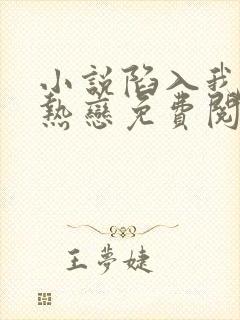 小說陷入我
熱戀免費閱
王夢婕